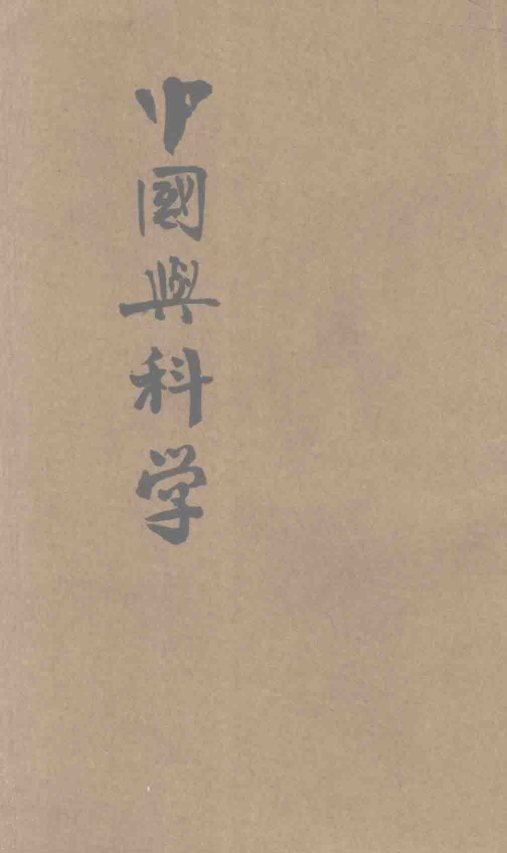 中國與科学